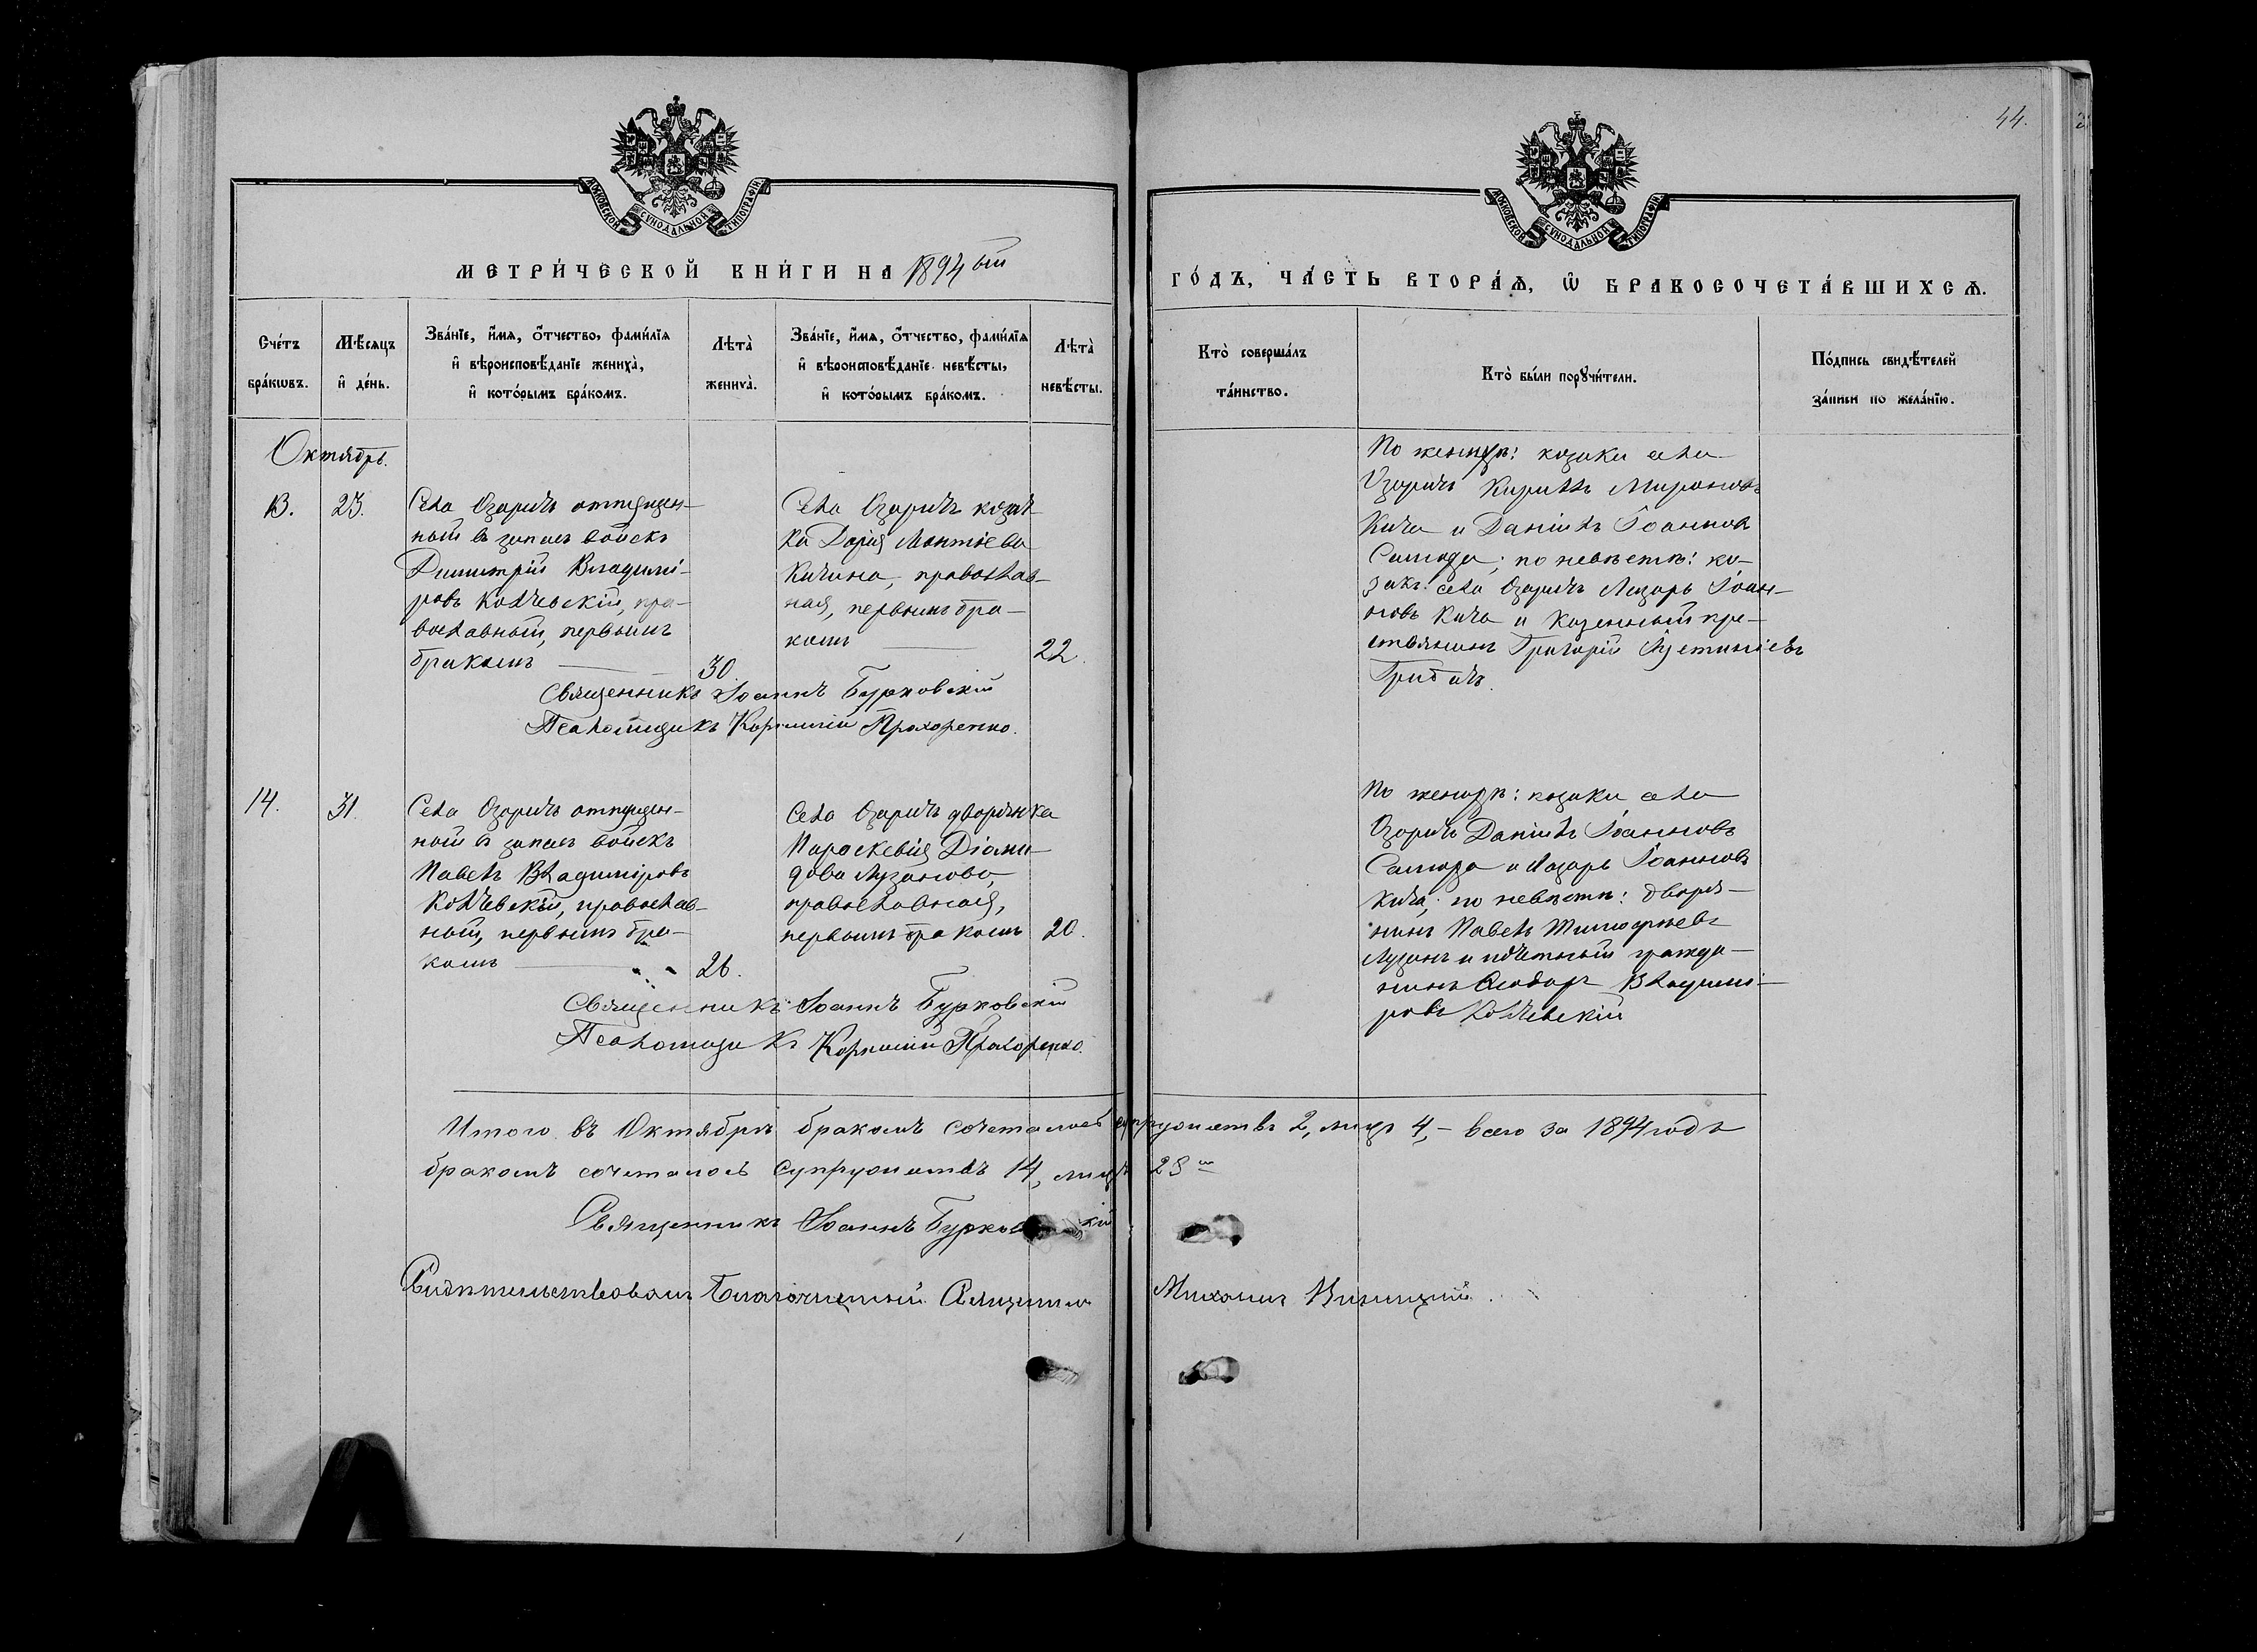 44.
МОСКОВСКОЙ СѴНОДАЛЬНОЙ ТИПОГРАФІИ.
МОСКОВСКОЙ СѴНОДАЛЬНОЙ ТИПОГРАФІИ.
МЕТРИ́ЧЕСКОЙ КНИ́ГИ НА 1894 ый
ГО́ДЪ, ЧА́СТЬ ВТОРА́Ѧ, Ѽ БРАКОСОЧЕТА́ВШИХСѦ.
Сче́тъ
бра́кωвъ.
Мѣ́сяцъ
и҆ де́нь.
Зва́нїе, и҆́мѧ, о҆́тчество, фами́лїѧ
и҆ вѣроисповѣ́данїе жениха̀,
и҆ кото́рымъ бра́комъ.
Лѣта̀
жениха̀.
Зва́нїе, и҆́мѧ, о҆́тчество, фами́лїѧ
и҆ вѣроисповѣ́данїе невѣ́сты,
и҆ кото́рымъ бра́комъ.
Лѣта̀
невѣ́сты.
Кто̀ соверша́лъ
та́инство.
Кто̀ бы́ли порꙋчи́тели.
По́дпись свидѣ́телей
за́писи по жела́нїю.
Октябрь.
13.
23.
Села Озаричъ отпущен-
ный въ запасъ войскъ
Димитрій Владимі-
ровъ Колчевскій, пра-
вославный, первымъ
бракомъ
30.
Села Озаричъ козач-
ка Дарія
Кичина, православ-
ная, первымъ бра-
комъ
22.
Священникъ Іоаннъ Бурковскій
Псаломщикъ Корнилій Прохоренко.
По женихѣ: козаки села
Озаричъ Кириллъ Мироновъ
Кича и Даніилъ Іоанновъ
по невѣстѣ: ко-
закъ села Озаричъ Лазарь Іоан-
новъ Кича и казенный кре-
стьянинъ Григорій
14.
31.
Села Озаричъ отпущен-
ный въ запасъ войскъ
Павелъ Владиміровъ
Колчевскій, православ-
ный, первымъ бра-
комъ
26.
Села Озаричъ дворянка
Параскевія Діоми-
дова Лузанова,
православная,
первымъ бракомъ
20.
Священникъ Іоаннъ Бурковскій
Псаломщикъ Корнилій Прохоренко.
По женихѣ: козаки села
Озаричъ Даніилъ Іоанновъ
и Лазарь Іоанновъ
Кича; по невѣстѣ: дворя-
нинъ Павелъ Тимофѣевъ
и почетный гражда-
нинъ Ѳеодоръ Владимі-
ровъ Колчевскій
Итого въ Октябрѣ бракомъ сочеталось супружествъ 2, лицъ 4, — всего за 1894 годъ
бракомъ сочеталось супружествъ 14, лицъ 28
Священникъ Іоаннъ Бурковскій
Свидѣтельствовалъ Благочинный Священникъ Михаилъ